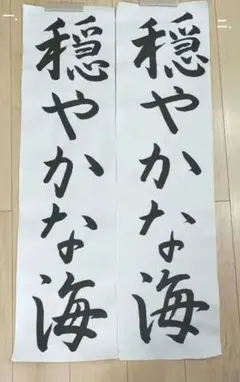 穏やかな海
穏やかな海